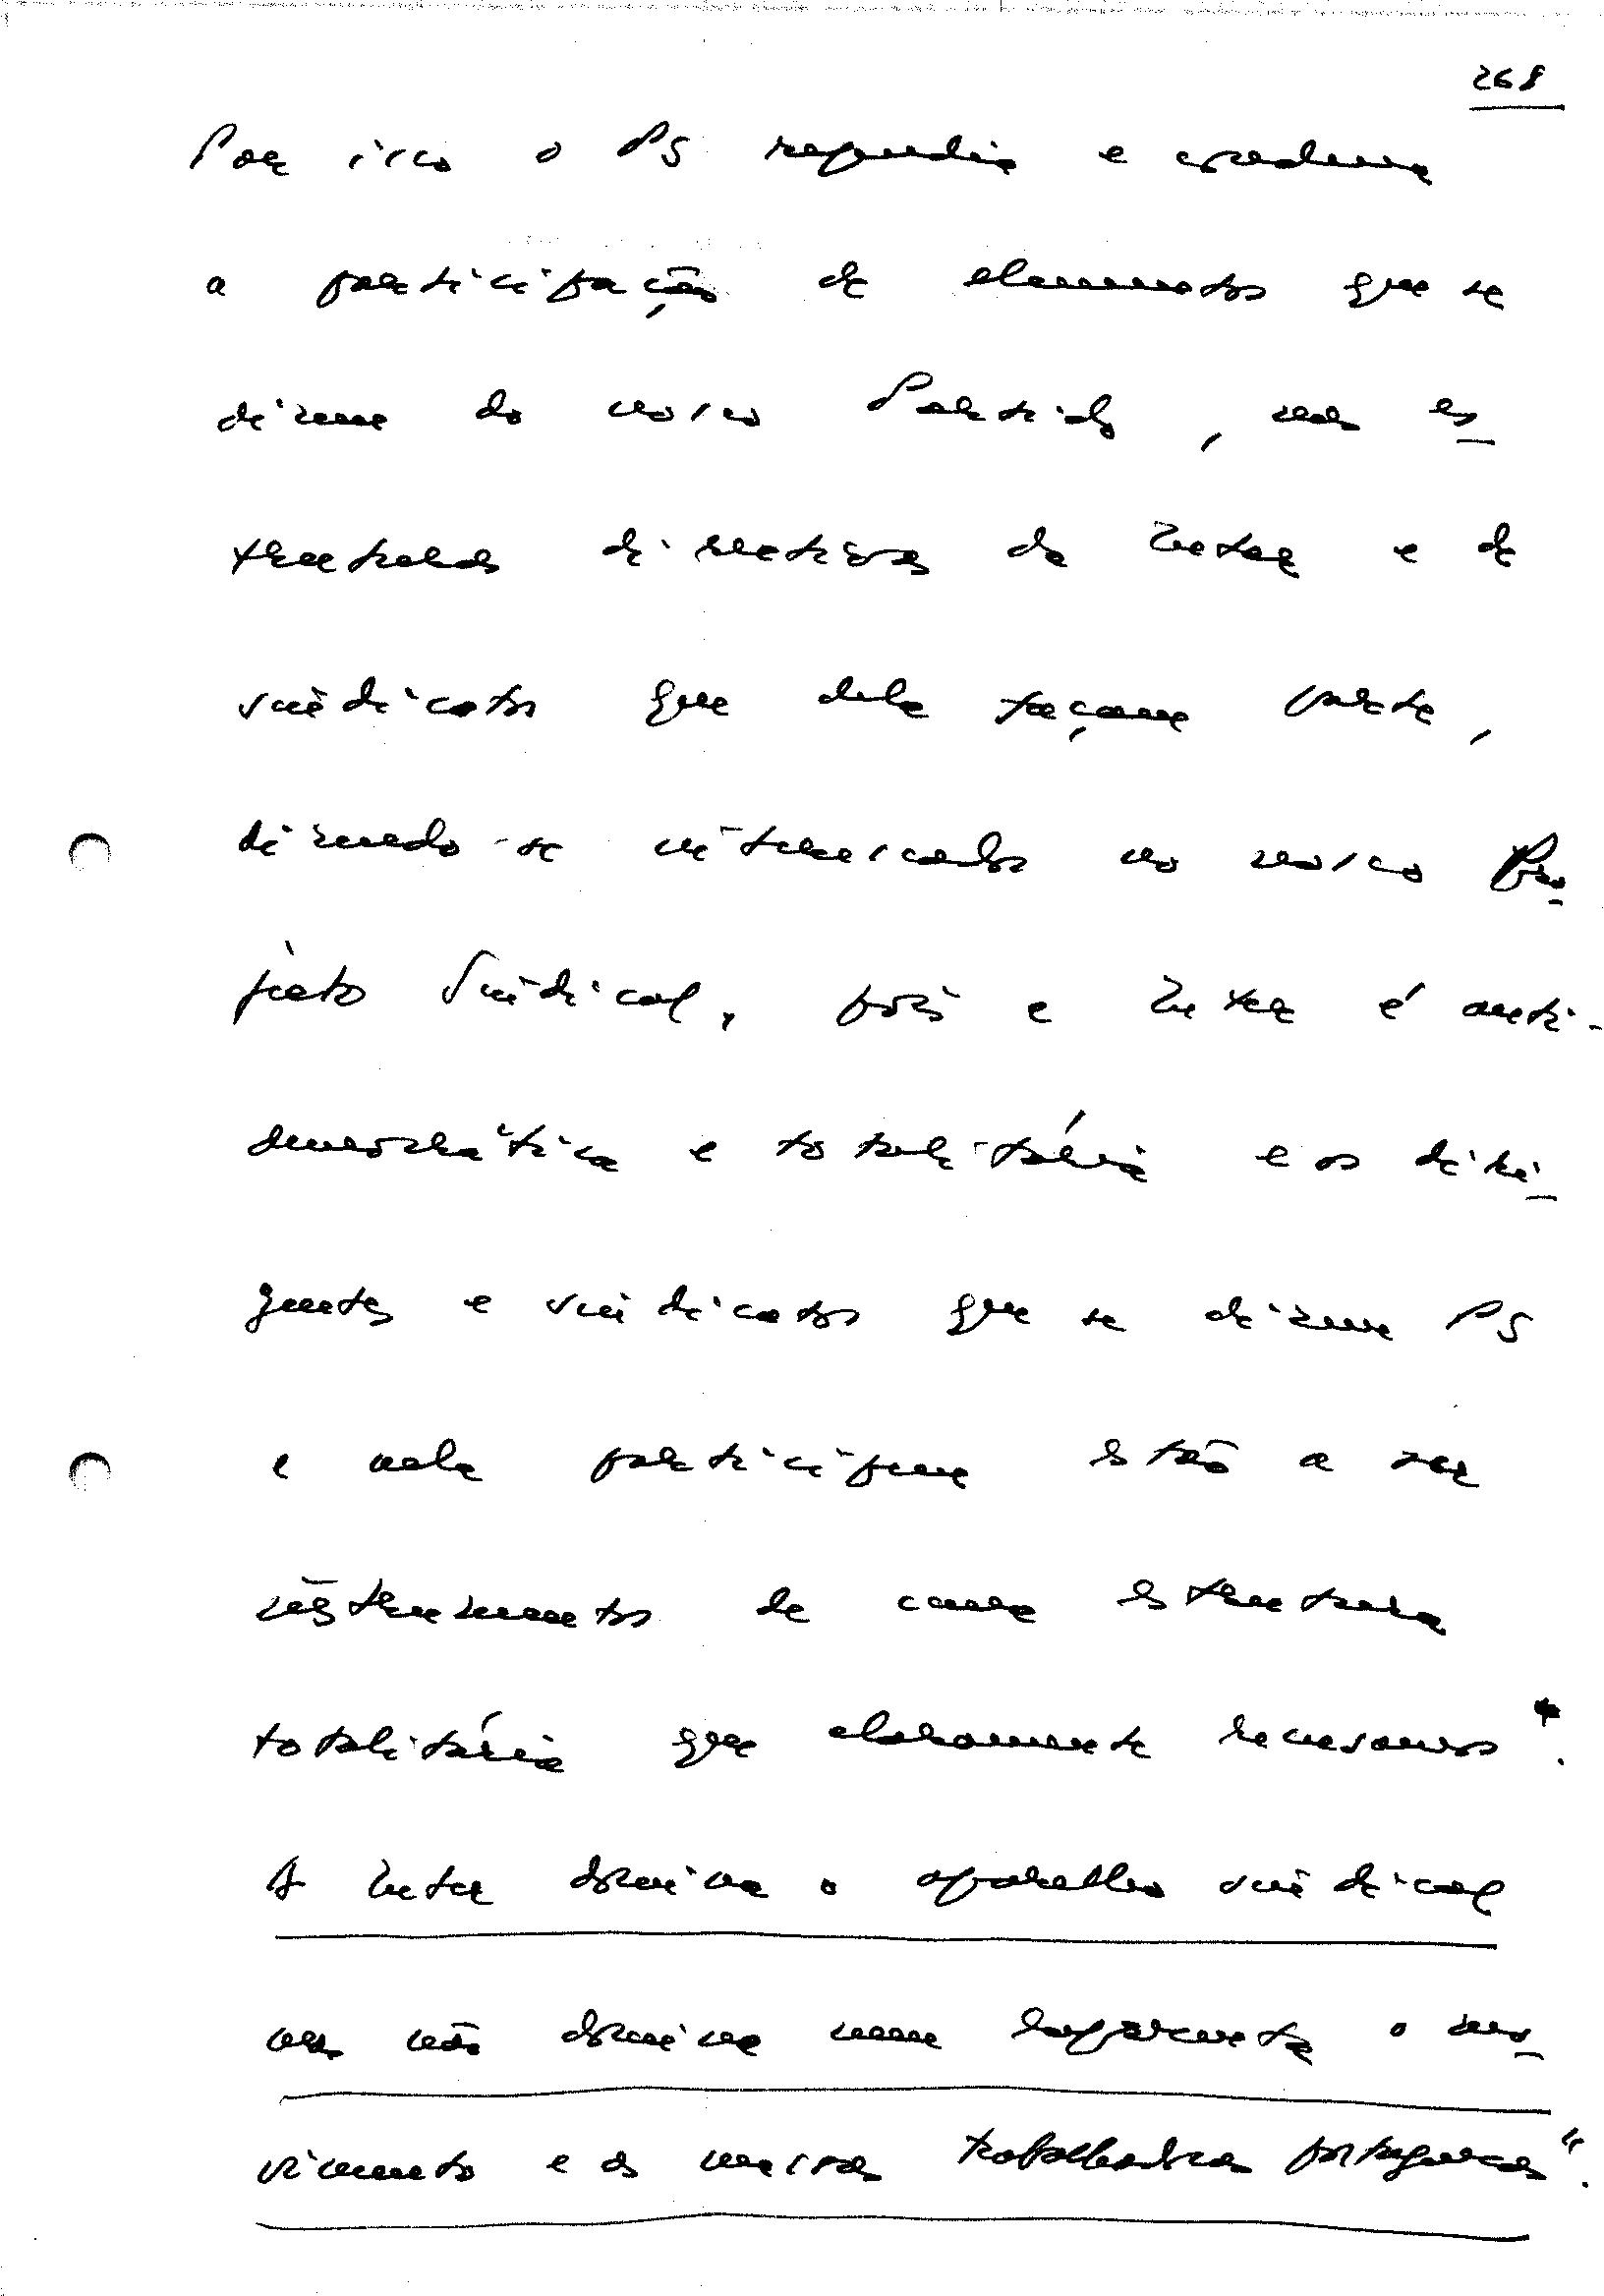 268
Por isso o PS repudia e condena
a participação de elementos que se
dizem do nosso Partido, nas es-
truturas directivas da Inter e de
sindicatos que dela façam parte,
dizendo-se interessados no nosso Pro-
jecto Sindical, pois a Inter é anti-
democrática e totalitária e os diri-
gentes e sindicatos que se dizem PS
e nela participem estão a ser
instrumentos de uma estrutura
totalitária que claramente recusamos".
A Inter domina o aparelho sindical
mas não domina nem representa o mo-
vimento e as massas trabalhadoras portuguesas".